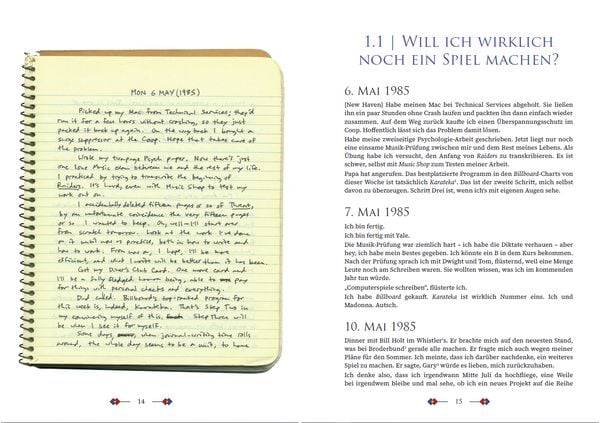 MON 6 MAY (1985)
Picked up my Mac from Technical Services; they'd
run it for a few hours without crashing, so they just
packed it back up again. On the way back I bought a
surge suppressor at the Coop. Hope that takes care of
the problem.
Wrote my two-page Psych paper. Now there's just
one lone Music exam between me and the rest of my life.
I practiced by trying to transcribe the beginning of
Raiders. It's hard, even with Music Shop to test my
work out on.
I accidentally deleted fifteen pages or so of
by an unfortunate coincidence the very fifteen pages
or so I wanted to keep. Oh, well — I'll start over
from scratch tomorrow. Look at the work I've done
on it until now as practice, both in how to write and
how to work. From now on, I hope, I'll be more
efficient, and what I write will be better than it has been.
Got my Diner's Club Card. One more card and
I'll be a fully-fledged human being, able to pay
for things with personal checks and everything.
Dad called. Billboard's top-ranked program for
this week is, indeed, Karateka. That's Step Two in
my convincing myself of this. Step Three will
be when I see it for myself.
Some days, when journal-writing time rolls
around, the whole day seems to be a unit, to have
14
1.1 | Will ich wirklich
noch ein Spiel machen?
6. Mai 1985
[New Haven] Habe meinen Mac bei Technical Services abgeholt. Sie ließen
ihn ein paar Stunden ohne Crash laufen und packten ihn dann einfach wieder
zusammen. Auf dem Weg zurück kaufte ich einen Überspannungsschutz im
Coop. Hoffentlich lässt sich das Problem damit lösen.
Habe meine zweiseitige Psychologie-Arbeit geschrieben. Jetzt liegt nur noch
eine einsame Musik-Prüfung zwischen mir und dem Rest meines Lebens. Als
Übung habe ich versucht, den Anfang von Raiders zu transkribieren. Es ist
schwer, selbst mit Music Shop zum Testen meiner Arbeit.
Papa hat angerufen. Das bestplatzierte Programm in den Billboard-Charts von
dieser Woche ist tatsächlich Karateka¹. Das ist der zweite Schritt, mich selbst
davon zu überzeugen. Schritt Drei ist, wenn ich's mit eigenen Augen sehe.
7. Mai 1985
Ich bin fertig.
Ich bin fertig mit Yale.
Die Musik-Prüfung war ziemlich hart – ich habe die Diktate verhauen – aber
hey, ich habe mein Bestes gegeben. Ich könnte ein B in dem Kurs bekommen.
Nach der Prüfung sprach ich mit Dwight und Tom, flüsternd, weil eine Menge
Leute noch am Schreiben waren. Sie wollten wissen, was ich im kommenden
Jahr tun würde.
„Computerspiele schreiben", flüsterte ich.
Ich habe Billboard gekauft. Karateka ist wirklich Nummer eins. Ich und
Madonna. Autsch.
10. Mai 1985
Dinner mit Bill Holt im Whistler's. Er brachte mich auf den neuesten Stand,
was bei Broderbund² gerade alle machen. Er fragte mich auch wegen meiner
Pläne für den Sommer. Ich meinte, dass ich darüber nachdenke, ein weiteres
Spiel zu machen. Er sagte, Gary³ würde es lieben, mich zurückzuhaben.
Ich denke also, dass ich irgendwann Mitte Juli da hochfliege, eine Weile
bei irgendwem bleibe und mal sehe, ob ich ein neues Projekt auf die Reihe
15